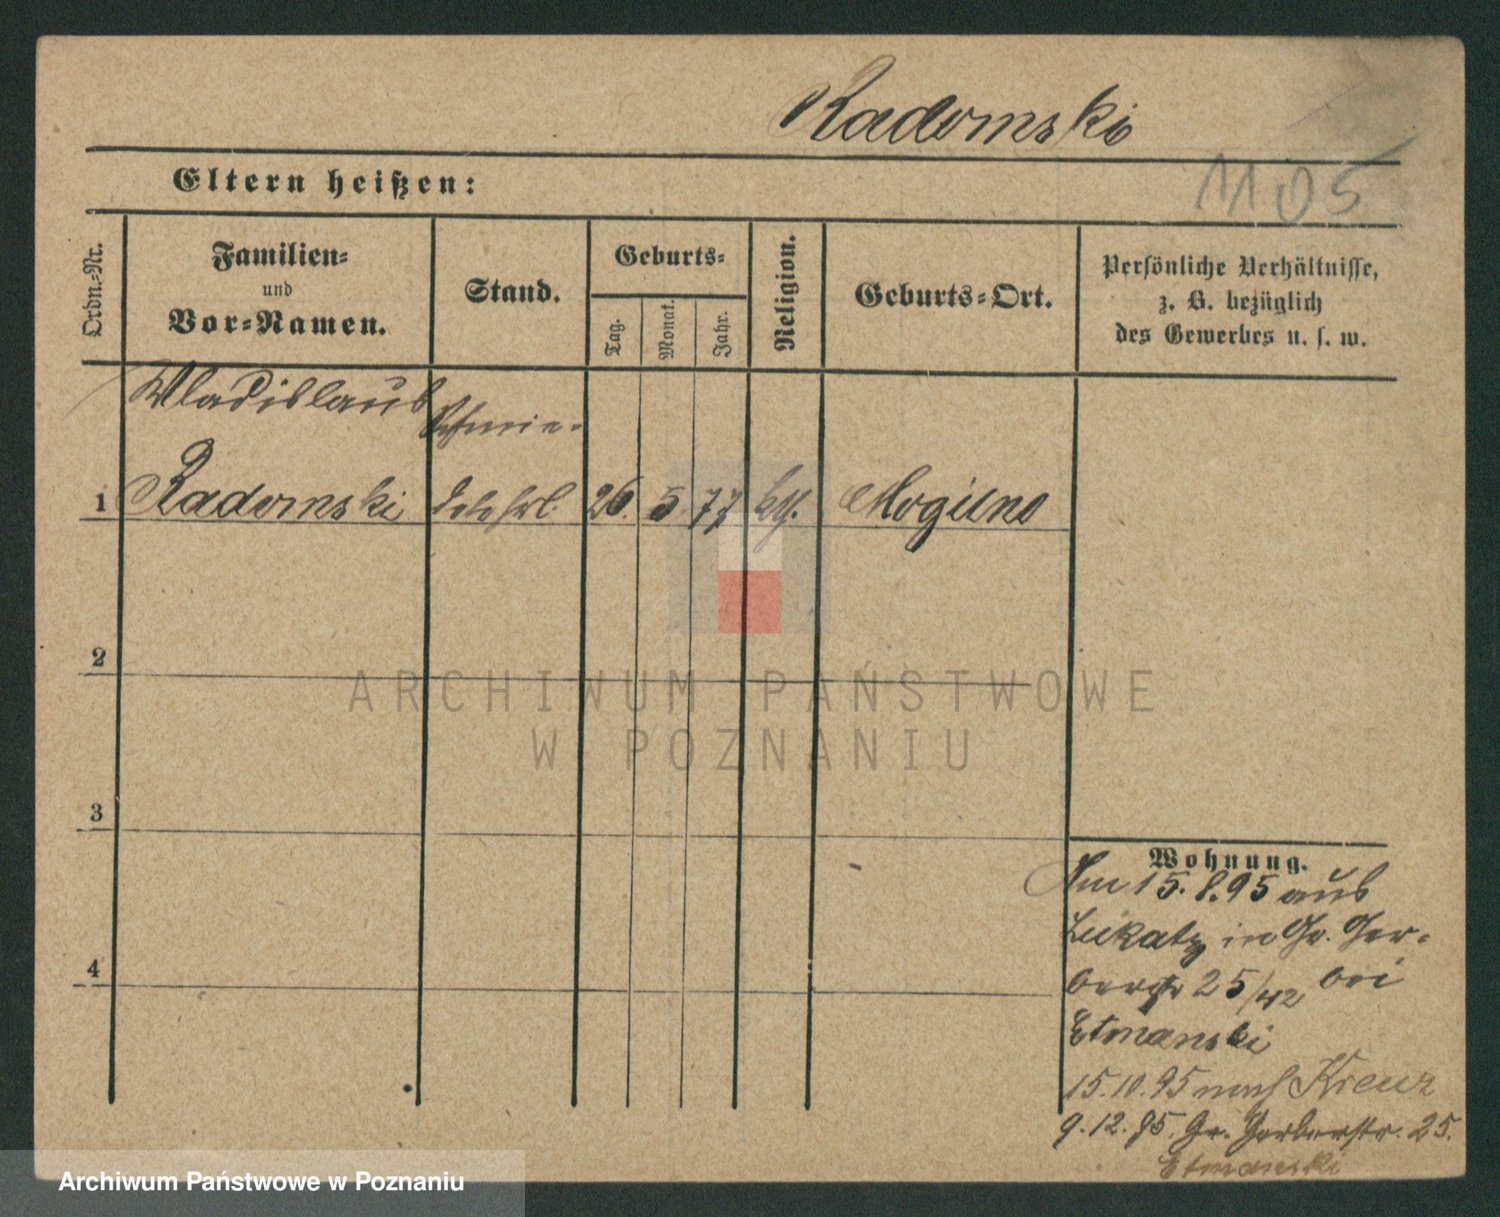 Radomski
1105
Eltern heißen:
Ordn.-Nr.
Familien-
und
Vor-Namen.
Stand.
Geburts-
Tag.
Monat.
Jahr.
Religion.
Geburts-Ort.
Persönliche Verhältnisse,
z. B. bezüglich
des Gewerbes u. s. w.
Wladislaus Schmie-
1 Radomski 26. 5. 77 kth. Mogilno
2
ARCHIWUM PAŃSTWOWE
W POZNANIU
3
4
Wohnung.
Am 15. 8. 95 aus
in Gr. Ger-
berstr 25/42 bei
Etmanski
15. 10. 95 nach Kreuz
9. 12. 95. Gr. Gerberstr. 25.
Etmanski
Archiwum Państwowe w Poznaniu